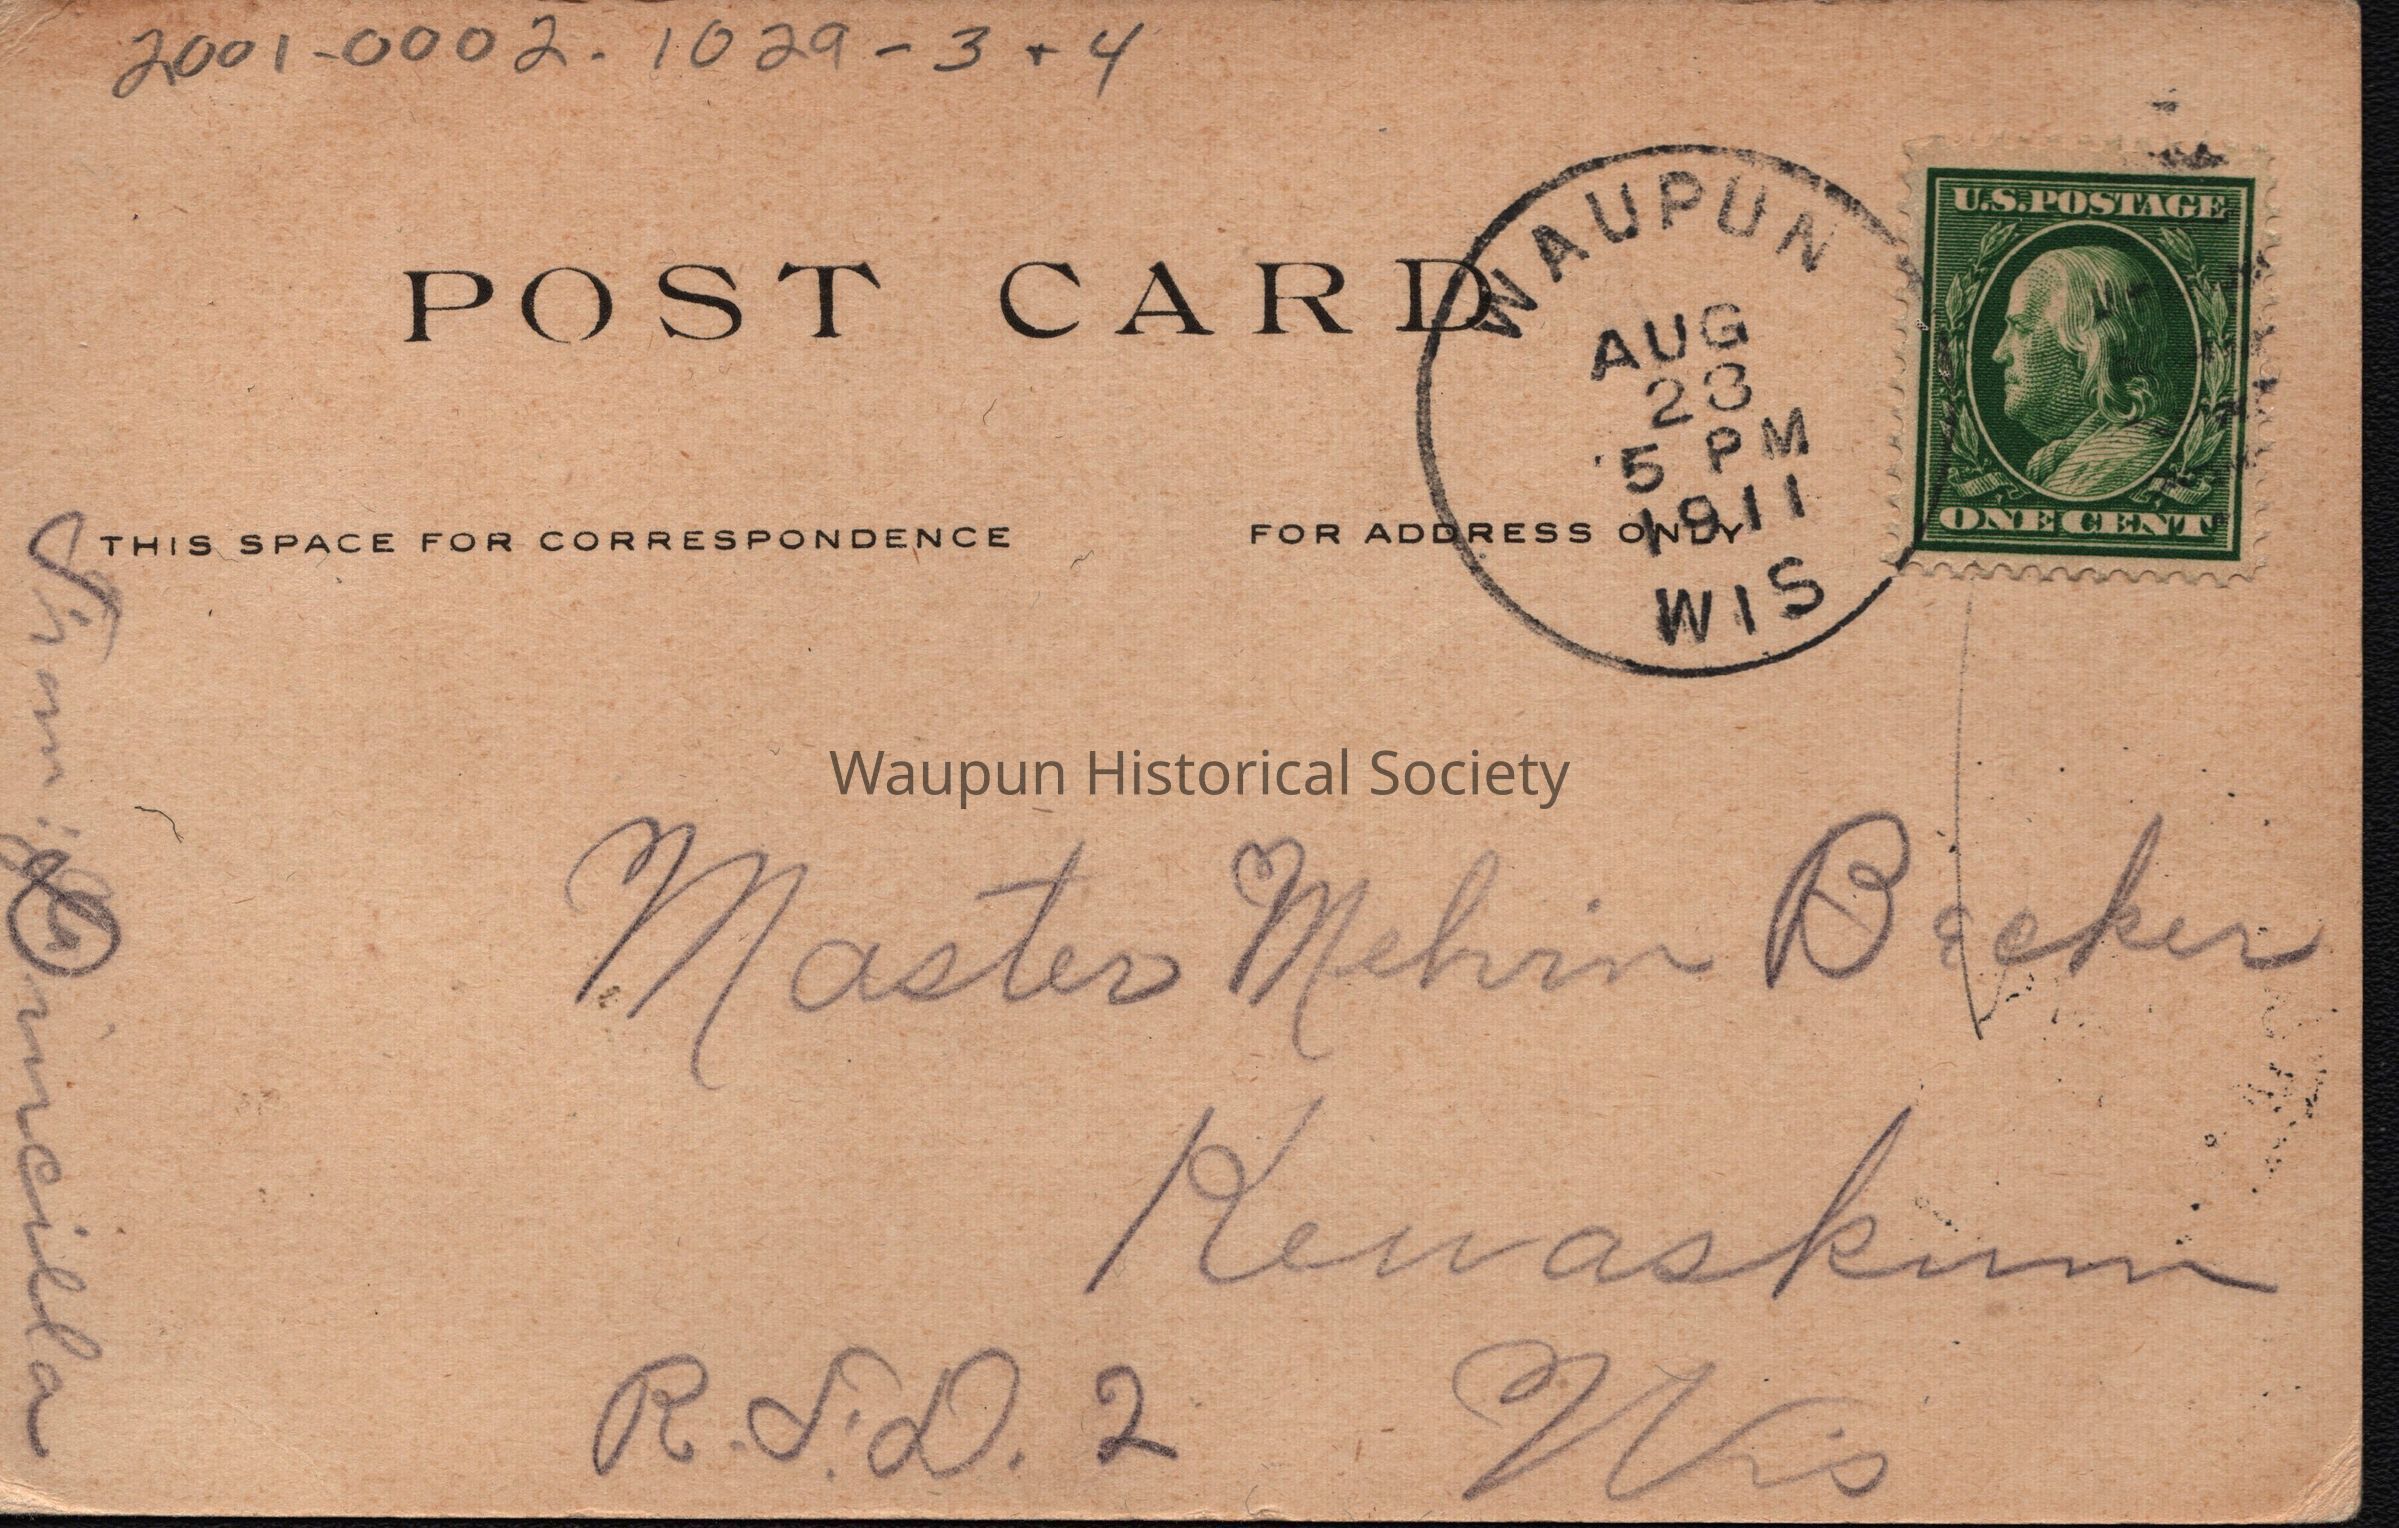 2001-0002.1029-3+4
POST CARD
WAUPUN
AUG
23
5 PM
1911
WIS
U.S. POSTAGE
ONE CENT
THIS SPACE FOR CORRESPONDENCE
FOR ADDRESS ONLY
Waupun Historical Society
Master Melvin Becker
Kewaskum
R.F.D. 2 Wis
From